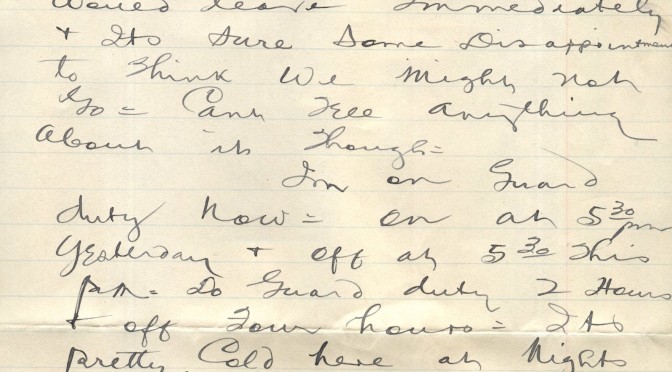 would leave immediately
+ Its sure some disappointment
to think we might not
go = Cant tell anything
about it though =
Im on guard
duty now = on at 5 30 pm
yesterday + off at 5 30 this
p.m. = Do guard duty 2 hours
+ off four hours = Its
pretty cold here at nights